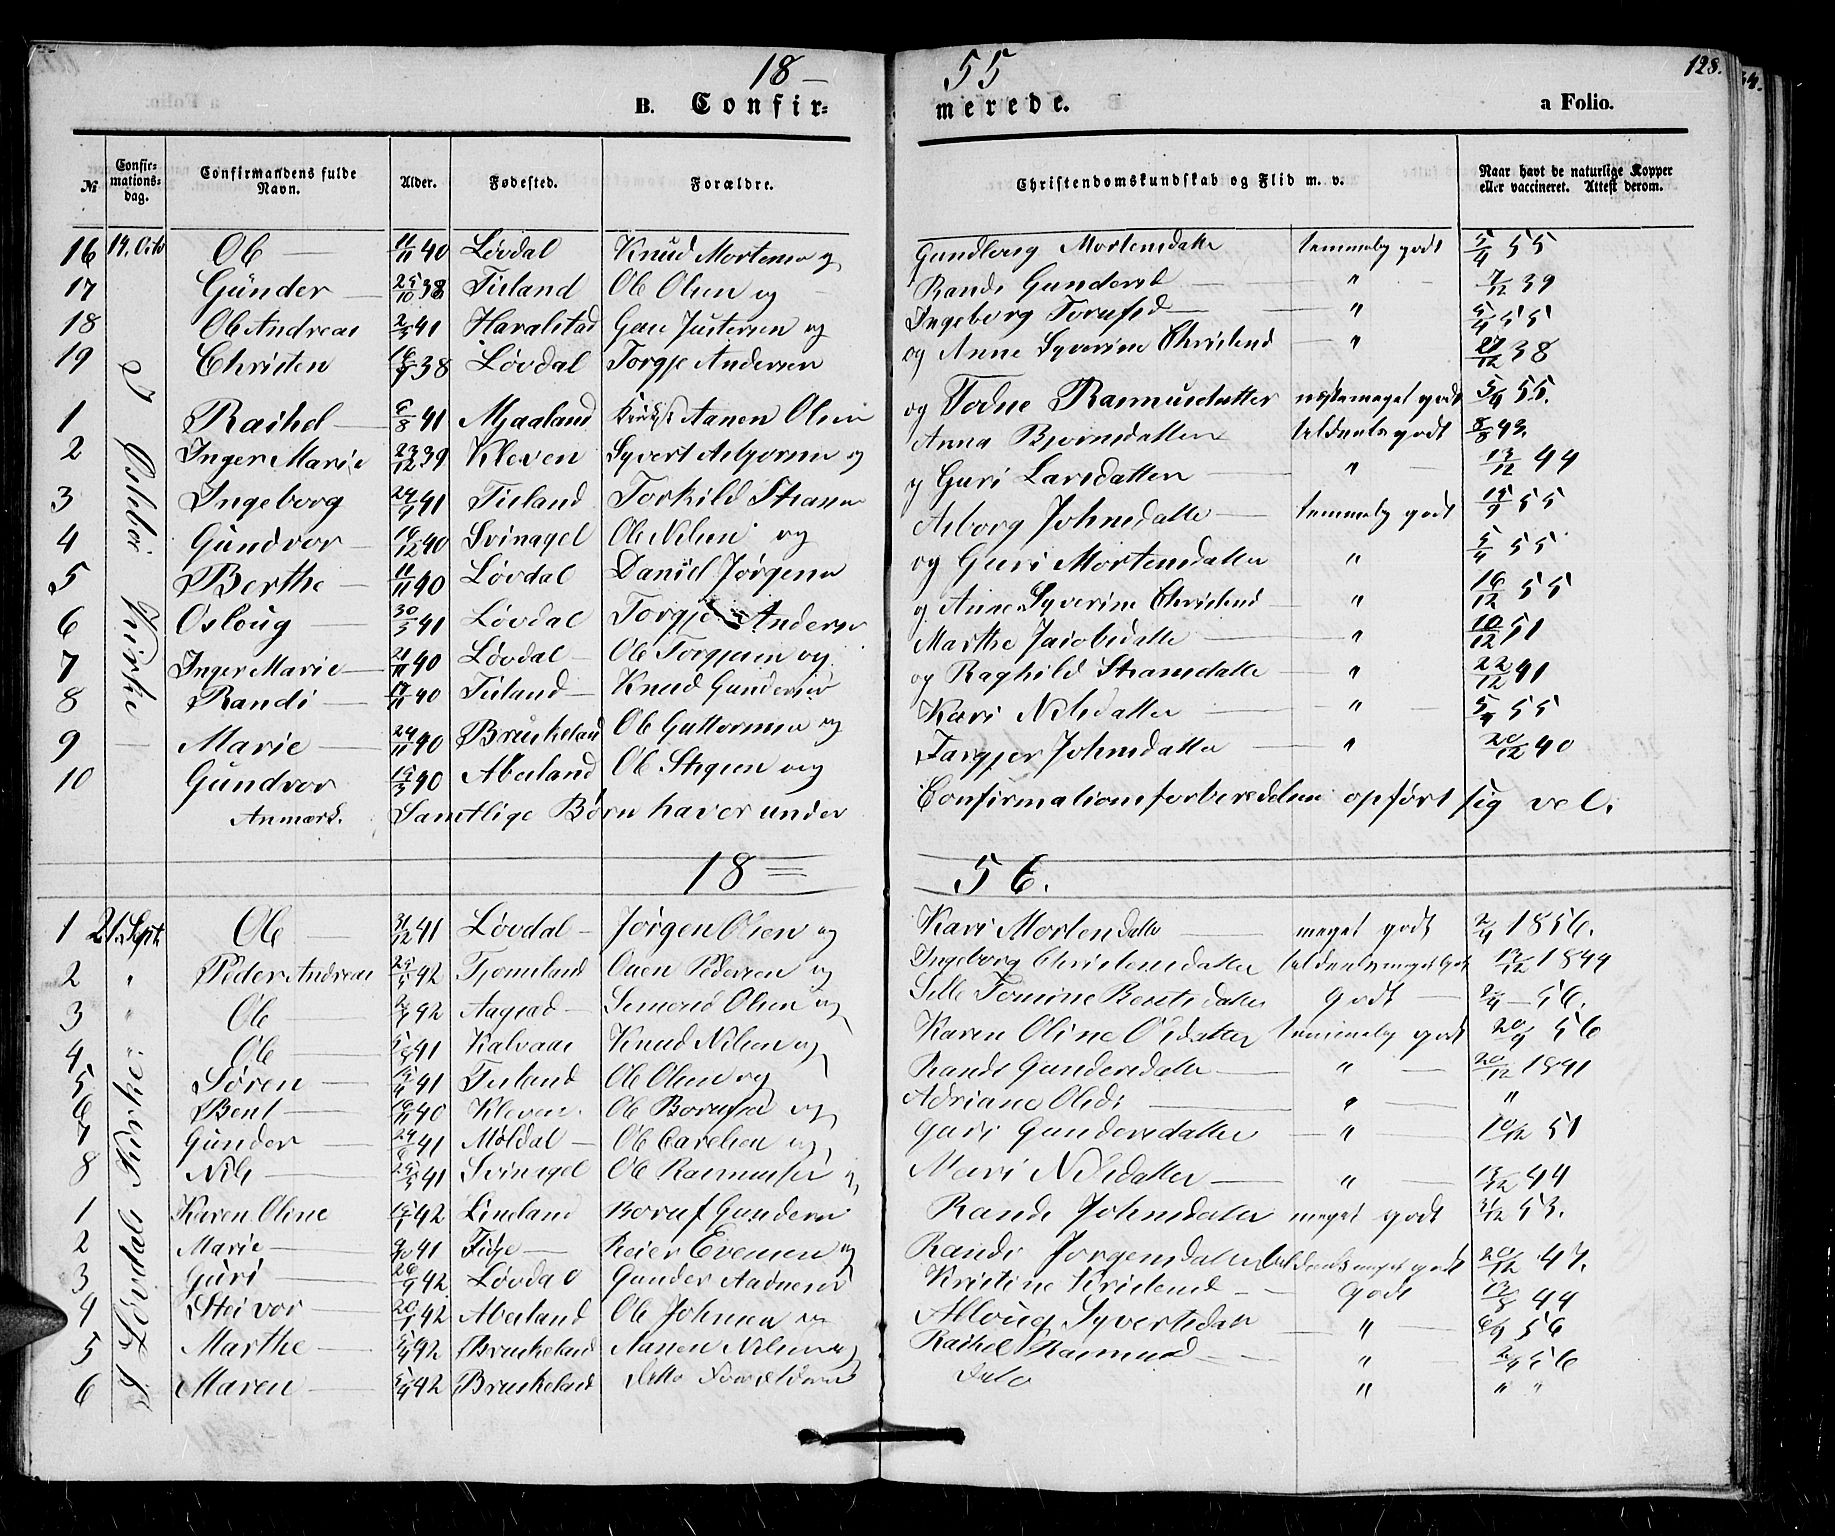 18 — 55 128.
B. Confir= merede. a Folio.
№ Confir=mations=dag. Confirmandens fulde Navn. Alder. Fødested. Forældre. Christendomskundskab og Flid m. v. Naar havt de naturlige Kopper eller vaccineret. Attest derom.
16 14. Octb Ole — 11/11 40 Løvdal Knud Mortensen og Gundborg Mortensdatter temmelig godt 5/4 55
17 Günder — 25/10 38 Tisland Ole Olsen og — Randi Gundersd — " — 7/12 39
18 Ole Andreas 2/3 41 Haralstad Jens Justesen og Ingeborg Torufsd — " 5/4 55
19 Christen Løvdal Torgje Andersen og Anne Syverine Christensd — " 27/12 38
1 Rachel — 6/8 41 Mjaaland Aanen Olsen og Todne Rasmusdatter meget godt 5/4 55.
2 Inger Marie 23/12 39 Kleven Syvert Asbjornsen og Anna Bjornsdatter udmerket godt 8/8 43.
3 Ingeborg 41 Tisland Torkild og Guri Larsdatter — " — 13/12 44
4 Gundvor — 19/12 40 Svinagel Ole Nilsen og Asborg Johnsdatter — temmelig godt 15/9 55
5 Berthe — 11/11 40 Løvdal Daniel Jørgensen og Guri Mortensdatter " 5/4 55
6 Osloug — 30/3 41 Løvdal Torgje Andersen og Anne Syverine Christensd — " 16/12 55
7 Inger Marie — 21/11 40 Løvdal — Ole Torgjusen og Marthe Jacobsdatter — " 10/12 51
8 Randi — 17/11 40 Tisland — Knud Gundersen og Raghild — " 22/12 41
9 — Marie — 24/11 40 Bruskeland Ole Guttormsen og Kari Nilsdatter — " — 5/4 55
10 Gundvor 15/3 40 Abesland Ole og Targjer Johnsdatter — " 20/12 40
I Øslebø Kirke
Anmærk. Samtlige Børn haver under Confirmationsforberedelsen opført sig vel.
18 = 56.
1 21. Septb Ole — 31/12 41 Løvdal — Jørgen Olsen og Kari Mortensdatter — meget godt 2/4 1856.
2 " Peder Andreas 42 Tjomsland Ouen Pedersen og Ingeborg Christensdatter 13/12 1844
3 " Ole — 42 Aagsad — Semund Olsen og Sille Tomine Berntsdatter Godt — 2/4 — 56.
4 " Ole — 41 Kalvaas Knud Nilsen og Karen Oline Olsdatter temmelig godt 20/4 56
5 Søren — 41 Tisland Ole Olsen og Randi Gundersdatter — " — 20/12 1841
6 Bent — 40 Kleven. Ole Borufsen og Adriane Olsd: — " — "
7 Gunder — 41 Møldal — Ole Carelsen og Guri Gundersdatter — " — 10/12 51
8 Nils — 41 Svinagel Ole Rasmussen og Mari Nilsdatter — " — 13/12 44
1 Karen Oline 42 Lineland Boruf Gundersen Randi Johnsdatter meget godt 31/12 53.
2 Marie — 41 Fidje — Reier Evensen og Randi Jorgensdatter meget godt 20/12 47.
3 Guri — 26/9 42 Løvdal Gunder Aadnesen Kristine Kristensd — Godt — 13/8 44
4 Steivor — 42 Abesland Ole Johnsen og Alloug Syvertsdatter — " — 6/9 56
5 Marthe — 42 Bruskeland Aanen Nilsen og Rachel Rasmusd — " — 2/4 56
6 Maren — 42 Bruskeland Ditto Ditto " " "
I Løvdals Kirke